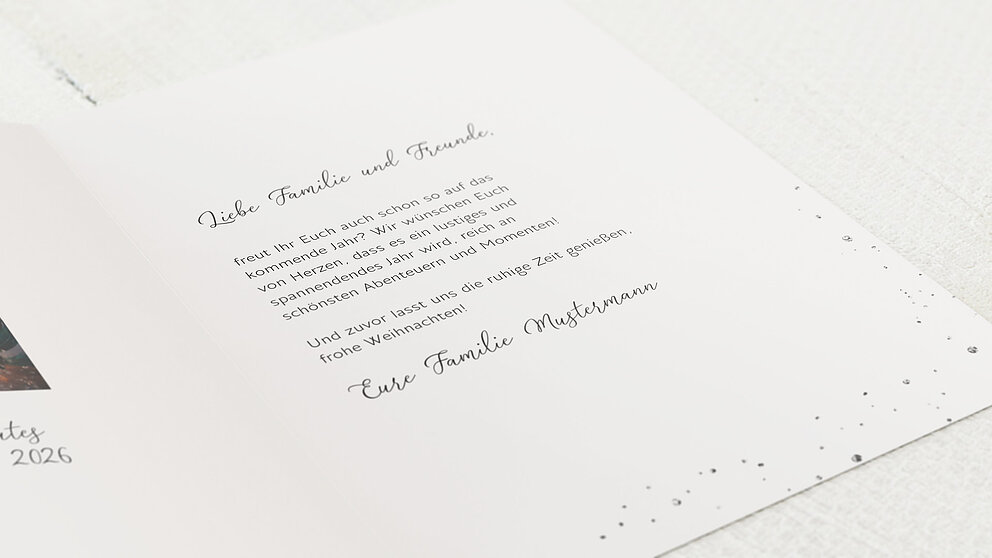 Liebe Familie und Freunde,
freut Ihr Euch auch schon so auf das
kommende Jahr? Wir wünschen Euch
von Herzen, dass es ein lustiges und
spannendendes Jahr wird, reich an
schönsten Abenteuern und Momenten!
Und zuvor lasst uns die ruhige Zeit genießen,
frohe Weihnachten!
Eure Familie Mustermann
2026